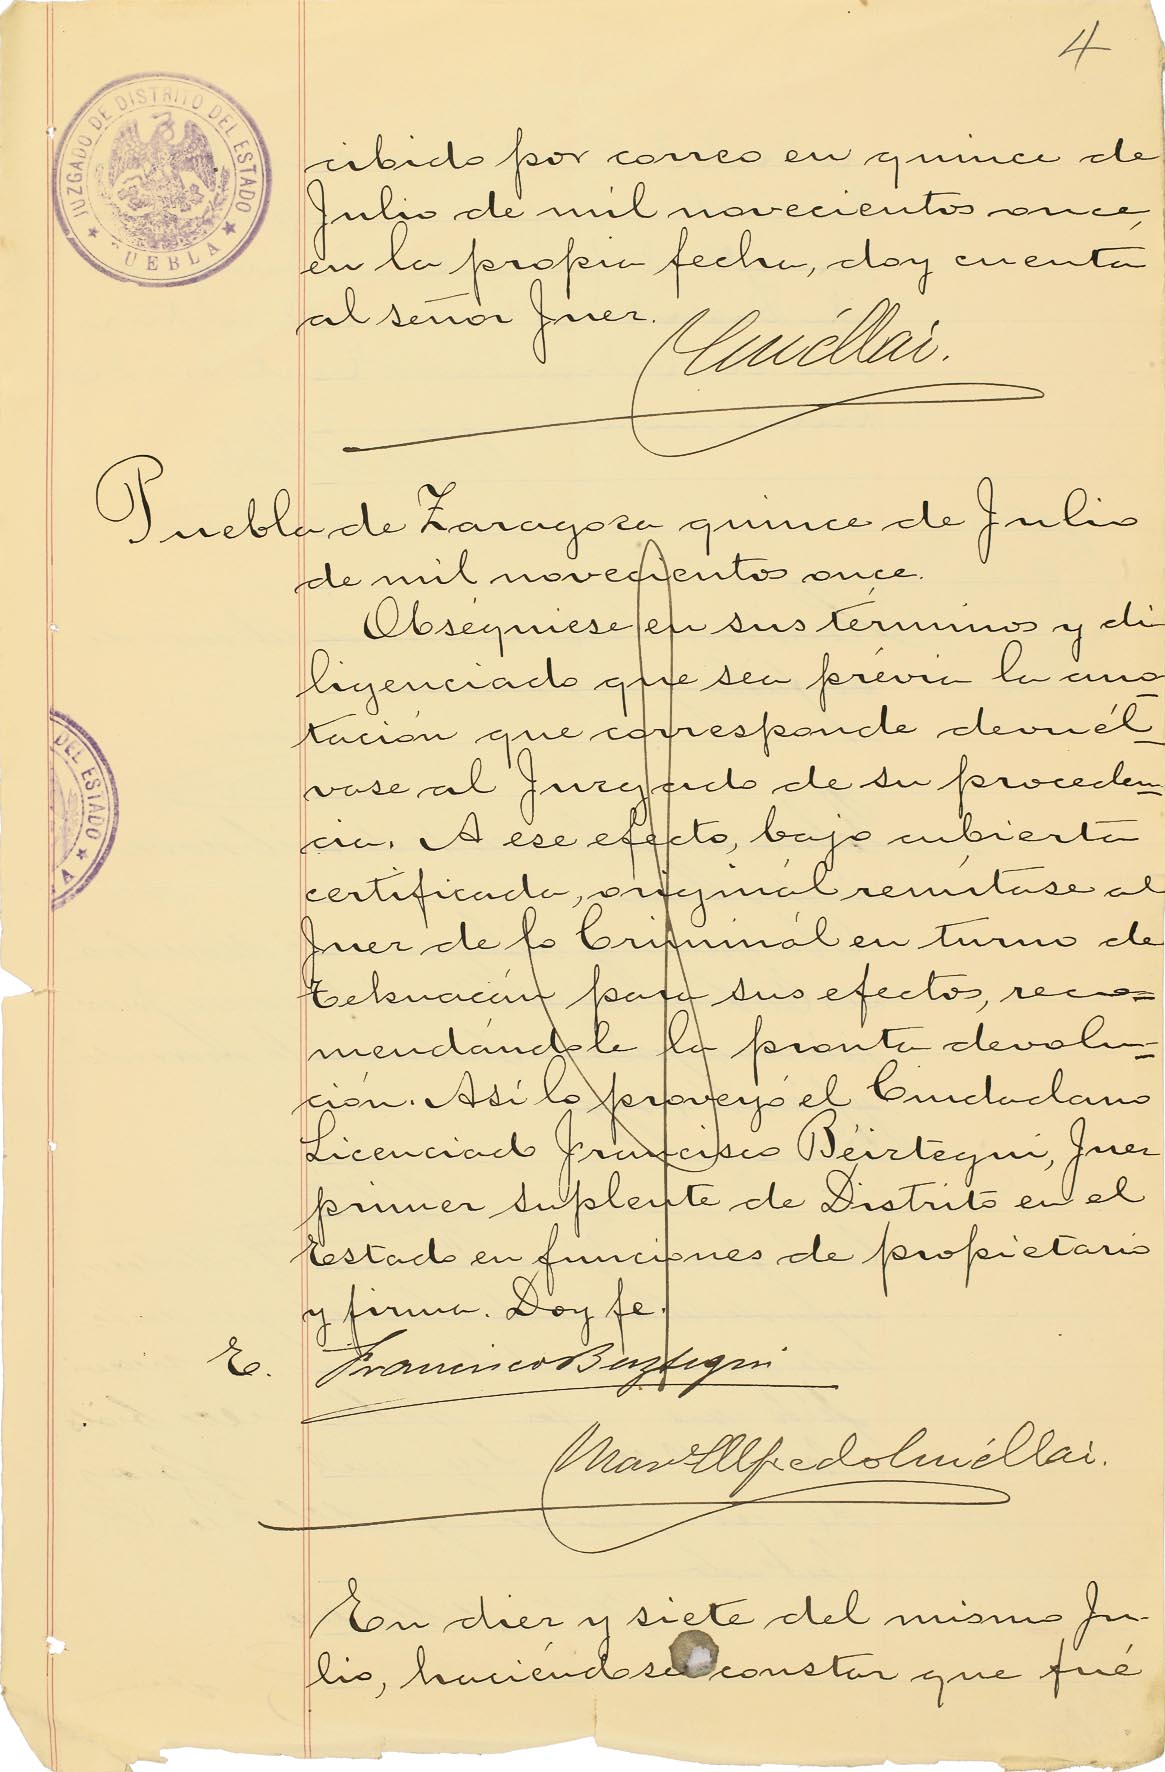 4
JUZGADO DE DISTRITO DEL ESTADO
PUEBLA
cibido por correo en quince de
Julio de mil novecientos once,
en la propia fecha, doy cuenta
al señor Juez.
Puebla de Zaragoza quince de Julio
de mil novecientos once.
Obséquiese en sus términos y di
ligenciado que sea prévia la ano
tación que corresponde devuél-
vase al Juzgado de su proceden-
cia. A ese efecto, bajo cubierta
certificada, originál remítase al
Juez de lo Criminál en turno de
Tehuacán para sus efectos, reco=
mendándole la pronta devolu=
ción. Así lo proveyó el Ciudadano
Licenciado Francisco Béiztegui, Juez
primer suplente de Distrito en el
Estado en funciones de propietario
y firma. Doy fe.
DEL ESTADO
A
E. Francisco Beiztegui
Alfredo
En diez y siete del mismo Ju-
lio, haciéndose constar que fué